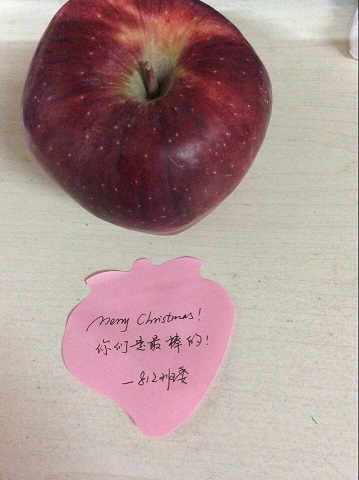 Merry Christmas!
你们是最棒的!
—812班委